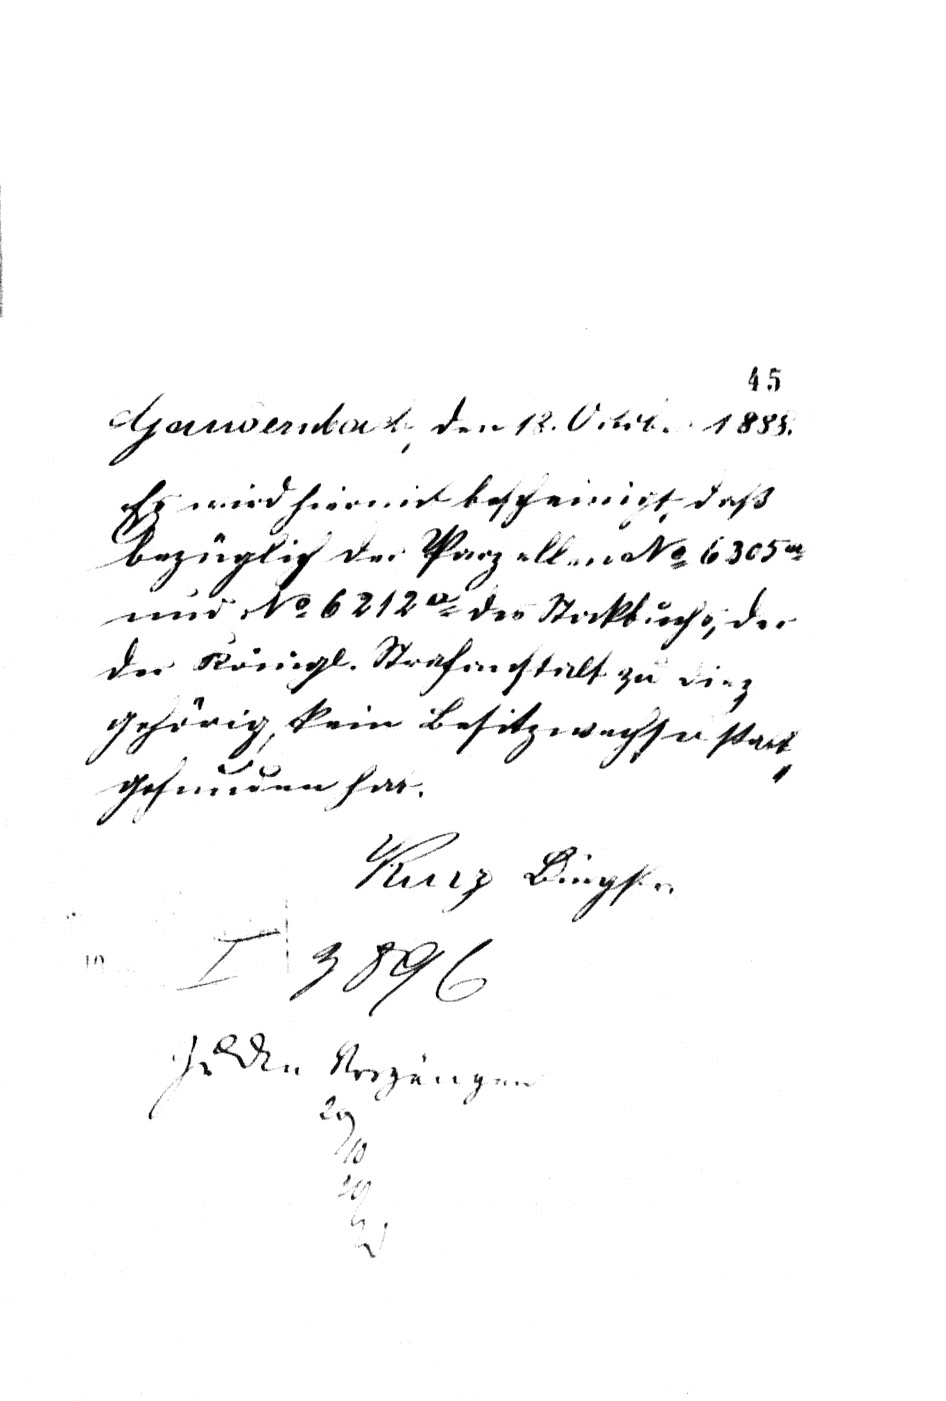 45
Gaudernbach, den 18. Octob. 1888.
Es wird hiermit bescheinigt, daß
bezüglich der Parzellen No 6305a
und No 6212a des Stockbuchs, der
der Königl. Strafanstalt zu Diez
gehörig, kein Besitzwechsel statt
gefunden hat.
Kurz Bürgstr
I 3896
Zu den Vorgängen
29
10